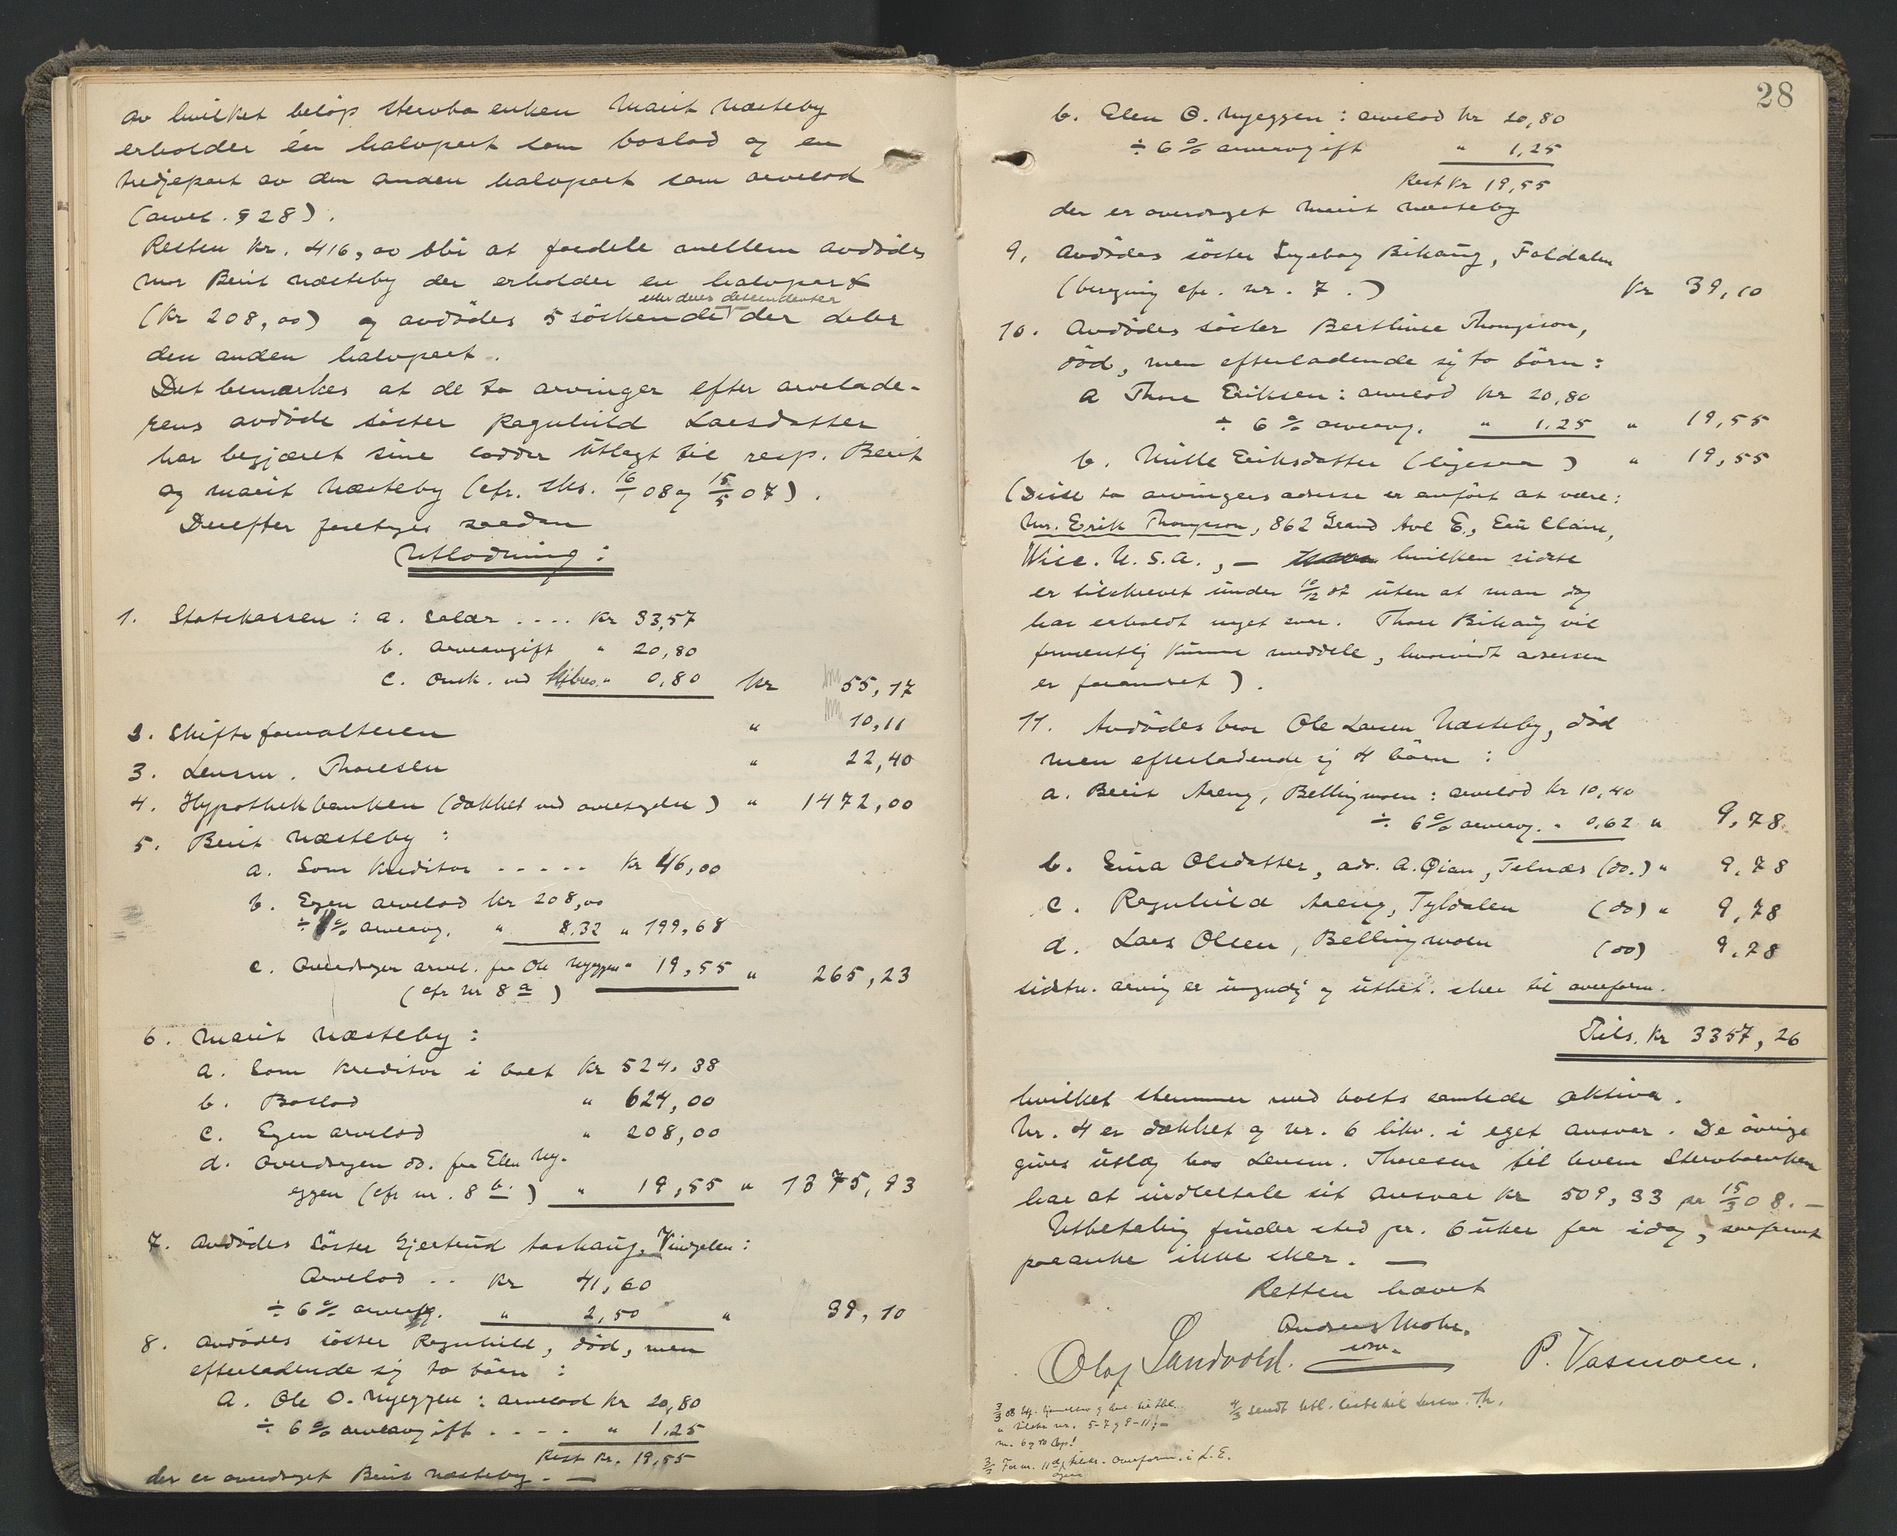 av hvilket beløp stervbo enken Marit Næsteby
erholder én halvpart som boslod og en
tredjepart av den anden halvpart som arvelod
(arvel. § 28).
Resten kr. 416,00 bli at fordele mellem avdødes
mor Berit Næsteby der erholder en halvpart
eller deres descendenter
(Kr 208,00) og avdødes 5 søskende der deler
den anden halvpart.
Det bemærkes at de to arvinger efter arvelade-
rens avdøde søster Ragnhild Larsdatter
har begjæret sine lodder utlagt til resp. Berit
og Marit Næsteby (cfr. sks. 16/1 08 og 15/5 07).
Derefter foretages saadan
Utlodning:
1. Statskassen: a. Salær .... kr 33,57
b. Arveavgift " 20,80
c. Omk. ved " 0,80 kr 55,17
2. Skifteforvalteren " 10,11
3. Lensm. Thoresen " 22,40
4. Hypothekbanken (dækket ved overtagelse) " 1472,00
5. Berit Næsteby:
a. Som kreditor ..... kr 46,00
b. Egen arvelod kr 208,00
÷ 4 % arveavg. " 8,32 " 199,68
c. Overdragen arvel. fra Ole Nyeggen " 19,55 " 265,23
(cfr nr 8 a)
6. Marit Næsteby:
a. Som kreditor i boet kr 524,38
b. Boslod " 624,00
c. Egen arvelod " 208,00
d. Overdragen do. fra Elen Ny-
eggen (cfr nr. 8 b.) " 19,55 " 1375,93
7. Avdødes søster Gjertrud Aashaug, Vingelen:
Arvelod .. kr 41,60
÷ 6 % arveavg. " 2,50 " 39,10
8. Avdødes søster Ragnhild, død, men
efterladende sig to børn:
a. Ole O. Nyeggen: arvelod kr 20,80
÷ 6 % arveavgift .... " 1,25
Rest kr. 19,55
der er overdraget Berit Næsteby. —
28
b. Elen O. Nyeggen: arvelod kr 20,80
÷ 6 % arveavgift " 1,25
Rest kr 19,55
der er overdraget Marit Næsteby
9. Avdødes søster Ingebor Bikaug, Foldalen
(beregning cfr. nr. 7.) Kr 39,10
10. Avdødes søster Berthine Thompson,
død, men efterladende sig to børn:
a Thore Eriksen: arvelod kr 20,80
÷ 6 % arveavg. " 1,25 " 19,55
b. Mille Eriksdatter (ligesaa) " 19,55
(Disse to arvingers adresse er anført at være:
Mr. Erik Thompson, 862 Grand Ave E., Eau Claire,
Wisc. U.S.A., — hvilken sidste
er tilskrevet under 10/12 07 uten at man dog
har erholdt noget svar. Thore Bikaug vil
formentlig kunne meddele, hvorvidt adressen
er forandret).
11. Avdødes bror Ole Larsen Næsteby, død
men efterladende sig 4 børn:
a. Berit Aaeng, Bellingmoen: arvelod kr 10,40
÷ 6 % arveavg. " 0,62 " 9,78
b. Olsdatter, adr. A. Øian, Telnæs (do.) " 9,78
c. Ragnhild Aaeng, Tyldalen (do) " 9,78
d. Lars Olsen, Bellingmoen (do) 9,78
sidstn. arving er umyndig og utbet. sker til overform.
Tils. kr 3357,26
hvilket stemmer med boets samlede aktiva.
Nr. 4 er dækket og nr. 6 likv. i eget ansvar. De øvrige
gives utlæg hos Lensm. Thoresen til hvem stervboenken
har at indbetale sit ansvar kr 509,33 pr 15/3 08. —
Utbetaling finder sted pr. 6 uker fra idag, saafremt
paaanke ikke sker. —
Retten hævet
Anders Mohr.
Olaf Sandvold. P. Vasmoen.
4/3 sendt utl. liste til Lensm. Th.
nr. 5-7 og 9-11
3/3 Form. 11 d overform. i L. E.